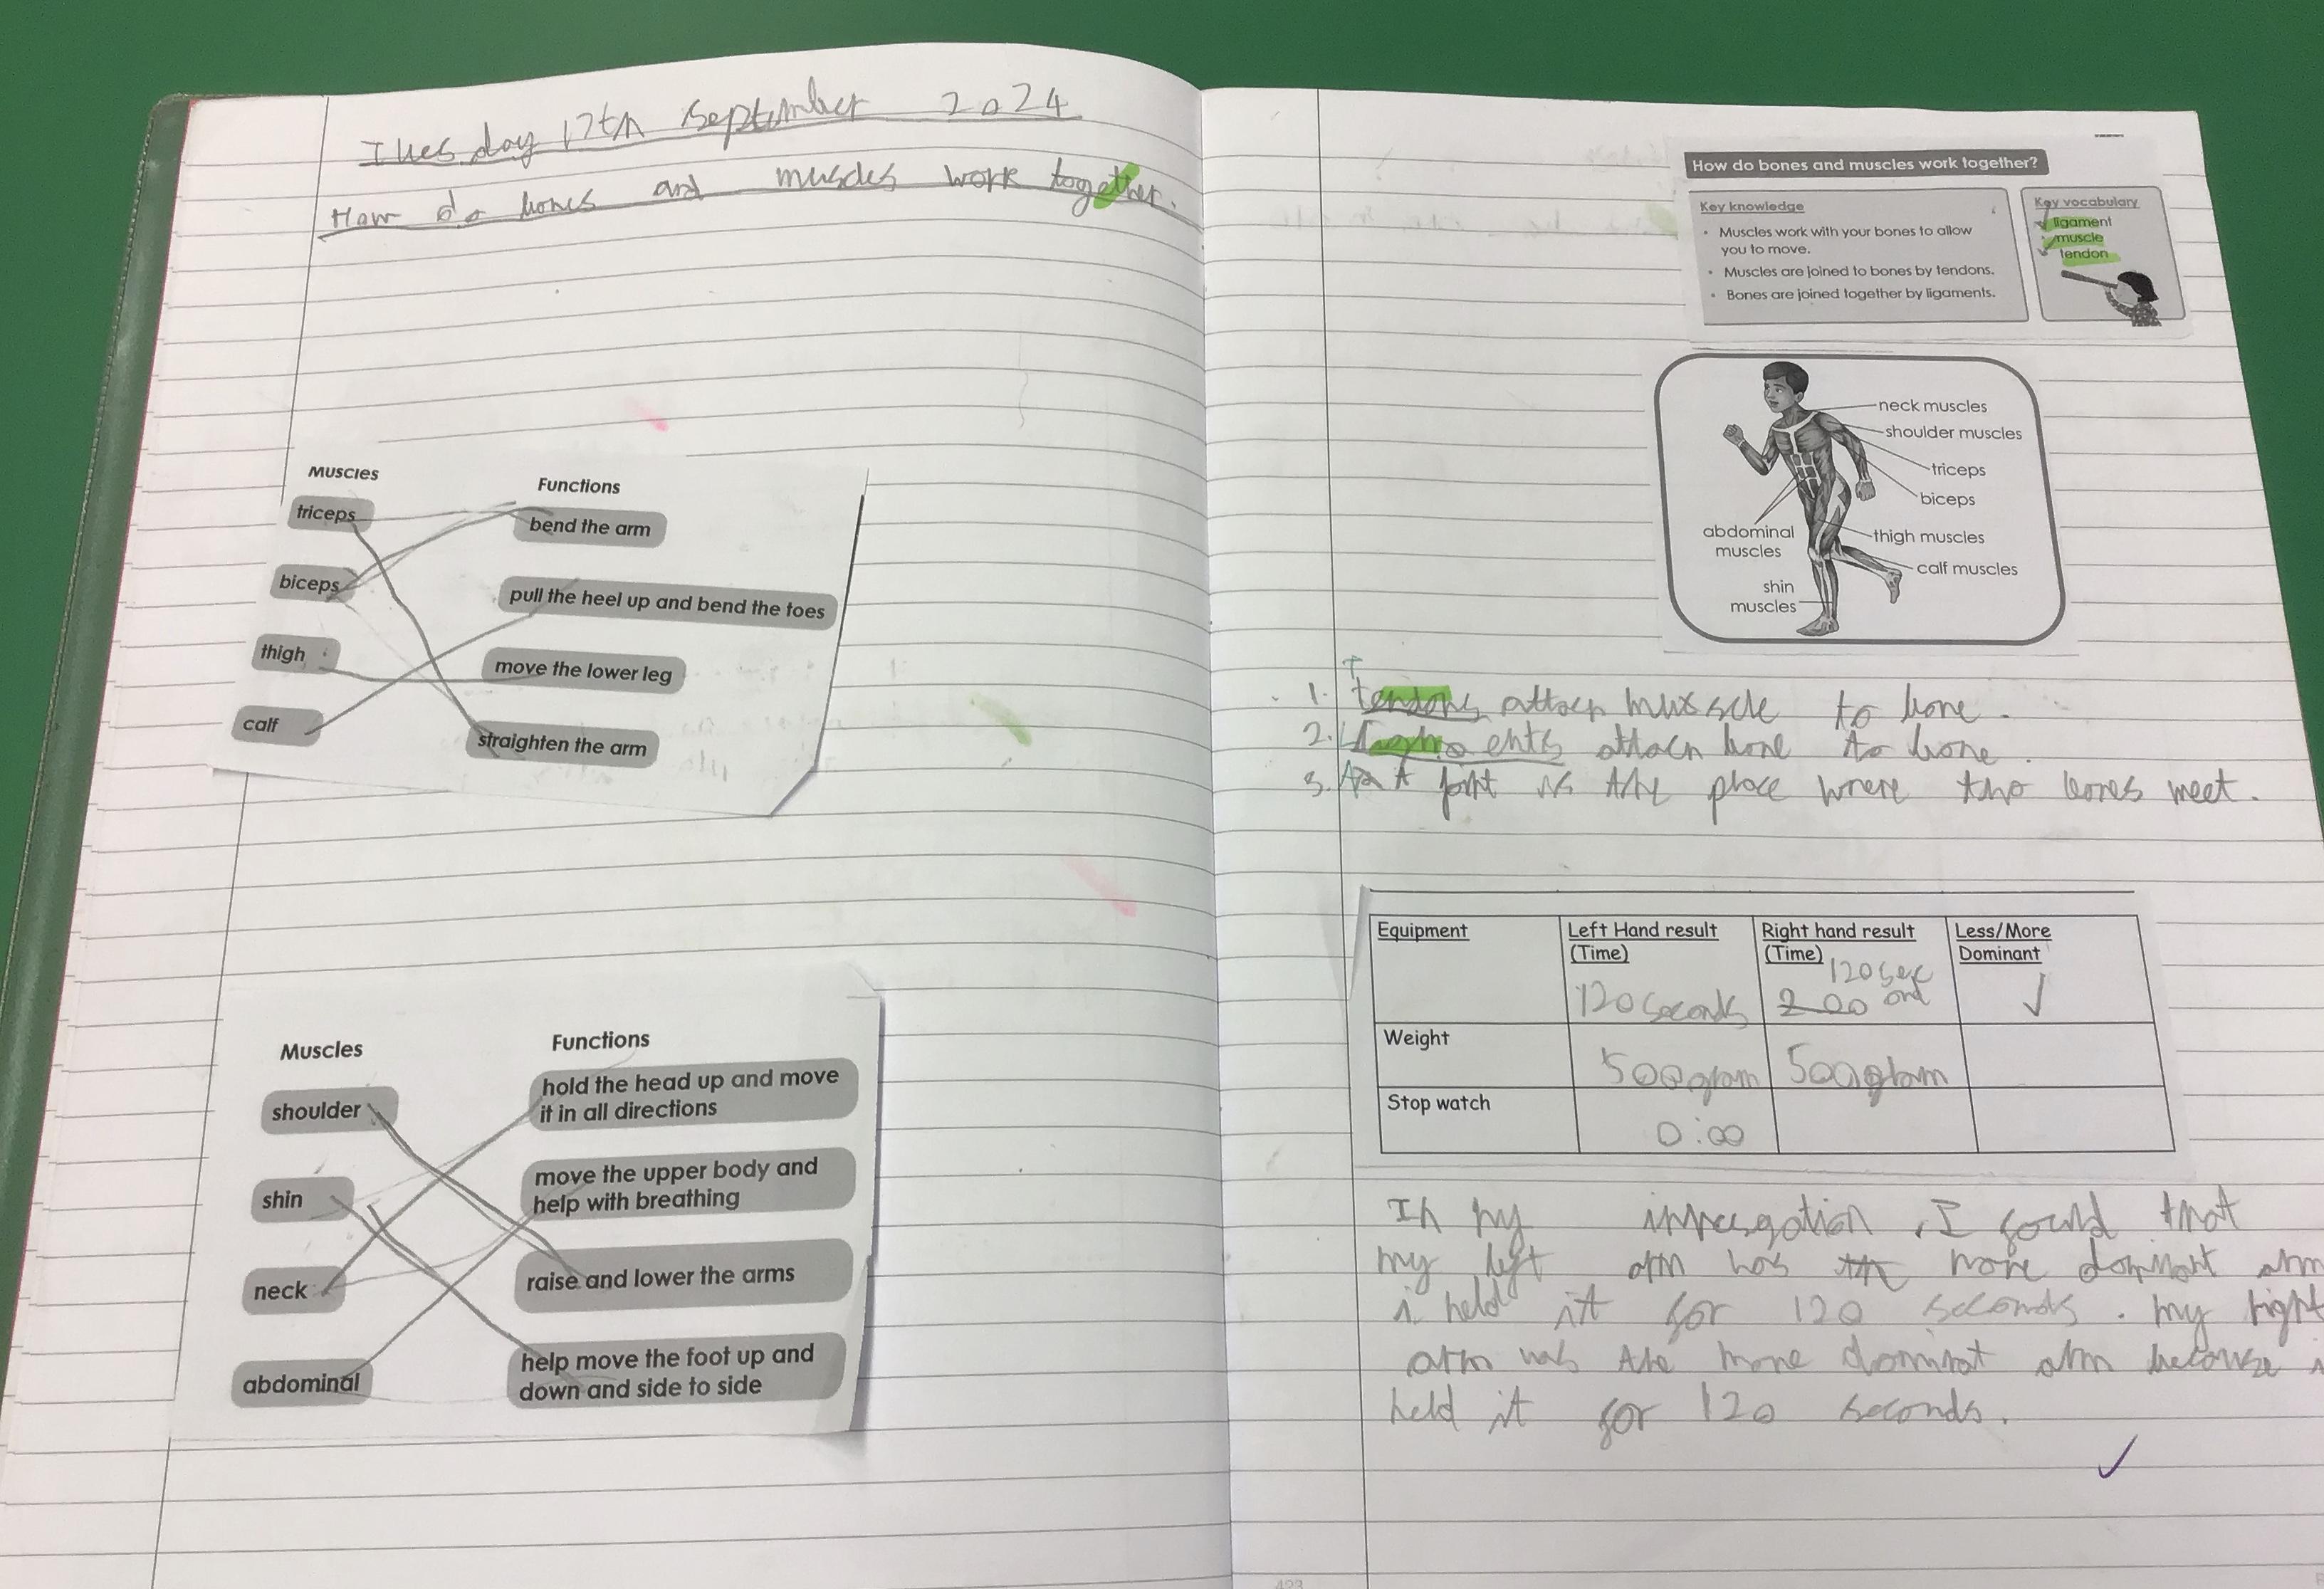 Tuesday 17th September 2024
How do bones and muscles work together.
Muscles
Functions
triceps
bend the arm
biceps
pull the heel up and bend the toes
thigh
move the lower leg
calf
straighten the arm
Muscles
Functions
shoulder
hold the head up and move
it in all directions
shin
move the upper body and
help with breathing
neck
raise and lower the arms
abdominal
help move the foot up and
down and side to side
How do bones and muscles work together?
Key knowledge
• Muscles work with your bones to allow
you to move.
• Muscles are joined to bones by tendons.
• Bones are joined together by ligaments.
Key vocabulary
ligament
muscle
tendon
neck muscles
shoulder muscles
triceps
biceps
abdominal
muscles
thigh muscles
calf muscles
shin
muscles
T
1. tendons attach muscle to bone.
2. attach bone to bone.
3. A joint is the place where two bones meet.
Equipment
Left Hand result
(Time)
120 seconds
Right hand result
(Time) 120 sec
200 ond
Less/More
Dominant
Weight
500gram
500gram
Stop watch
0:00
In my , I found that
my left arm has more dominant arm
i held it for 120 seconds. my right
arm was the more dominat arm because i
held it for 120 seconds.
423